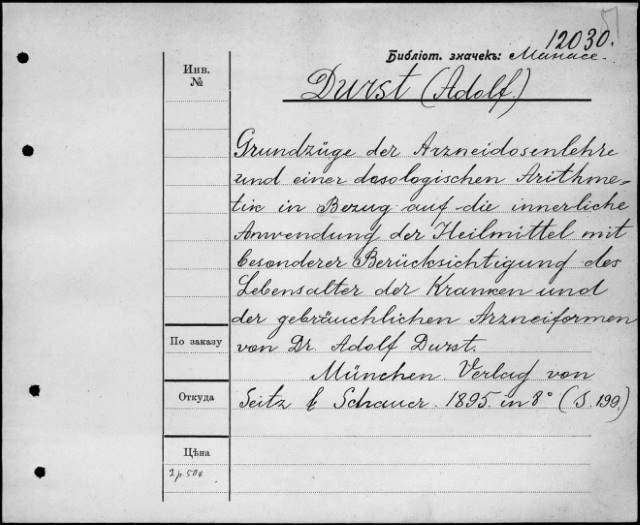 12030.
Библіот. значекъ: Манасс.
Инв.
№
Durst (Adolf.)
Grundzüge der Arzneidosenlehre
und einer dosologischen Arithme-
tik in Bezug auf die innerliche
Anwendung der Heilmittel mit
besonderer Berücksichtigung des
Lebensalter der Kranken und
der gebräuchlichen Arzneiformen
По заказу
von Dr. Adolf Durst.
München. Verlag von
Откуда
Seitz & Schauer. 1895. in 8° (S. 199.)
Цѣна
2 р. 50 к